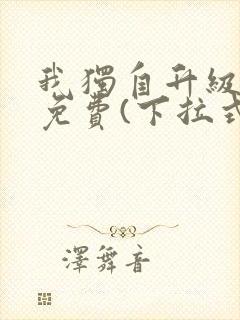 我獨自升級
免費(下拉式
澤舞音